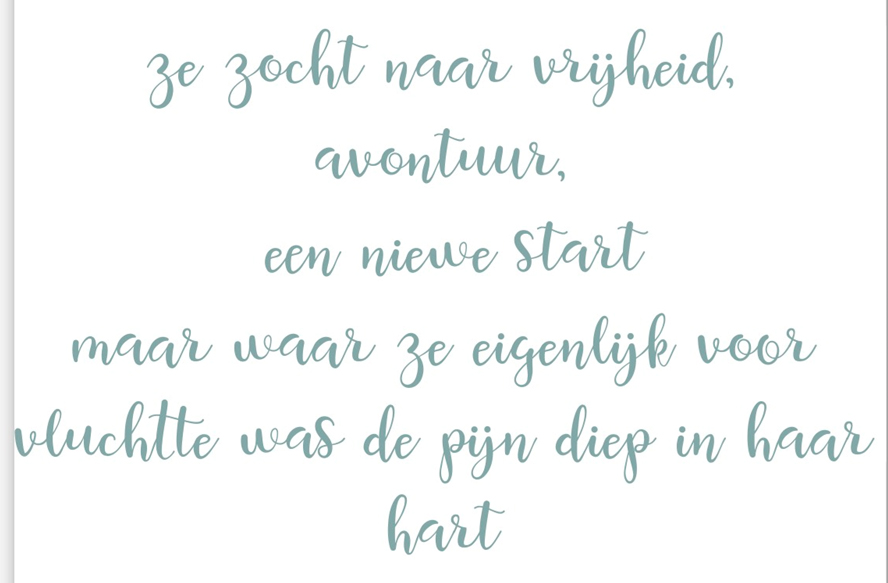 ze zocht naar vrijheid,
avontuur,
een niewe start
maar waar ze eigenlijk voor
vluchtte was de pijn diep in haar
hart